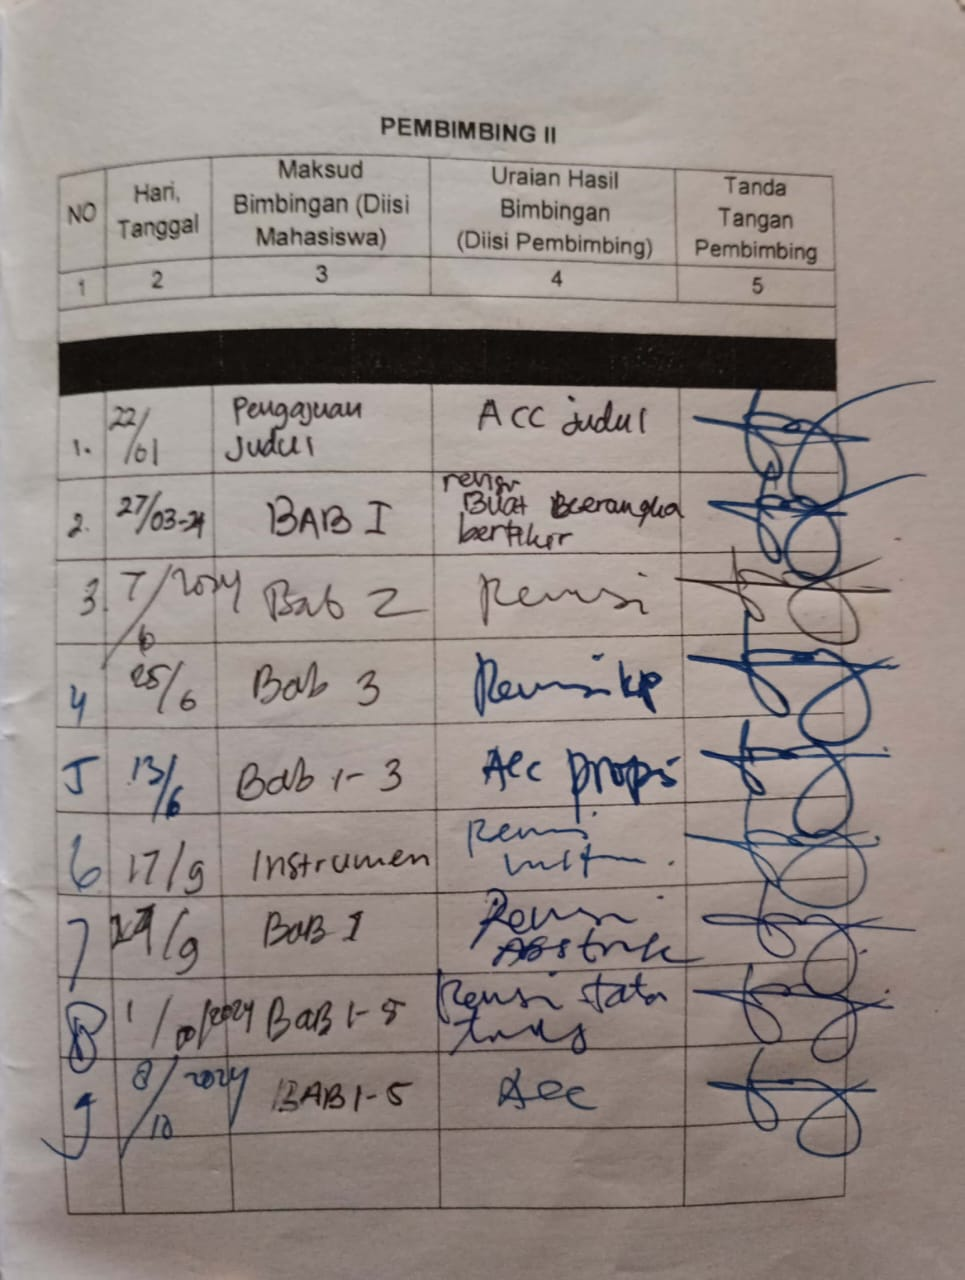 PEMBIMBING II
NO
Hari,
Tanggal
Maksud
Bimbingan (Diisi
Mahasiswa)
Uraian Hasil
Bimbingan
(Diisi Pembimbing)
Tanda
Tangan
Pembimbing
1 2 3 4 5
1. 22/01 Pengajuan Judul ACC judul
2. 27/03-24 BAB I revisi
Buat
bertikir
3. 7/6/2024 Bab 2 Revisi
4 25/6 Bab 3 Revisi
5 13/6 Bab 1-3 Acc
6 17/9 Instrumen Revisi
7 /9 BAB I Revisi
Abstrak
8 1/10/2024 BAB 1-5 Revisi tata
9 8/10/2024 BAB 1-5 Acc